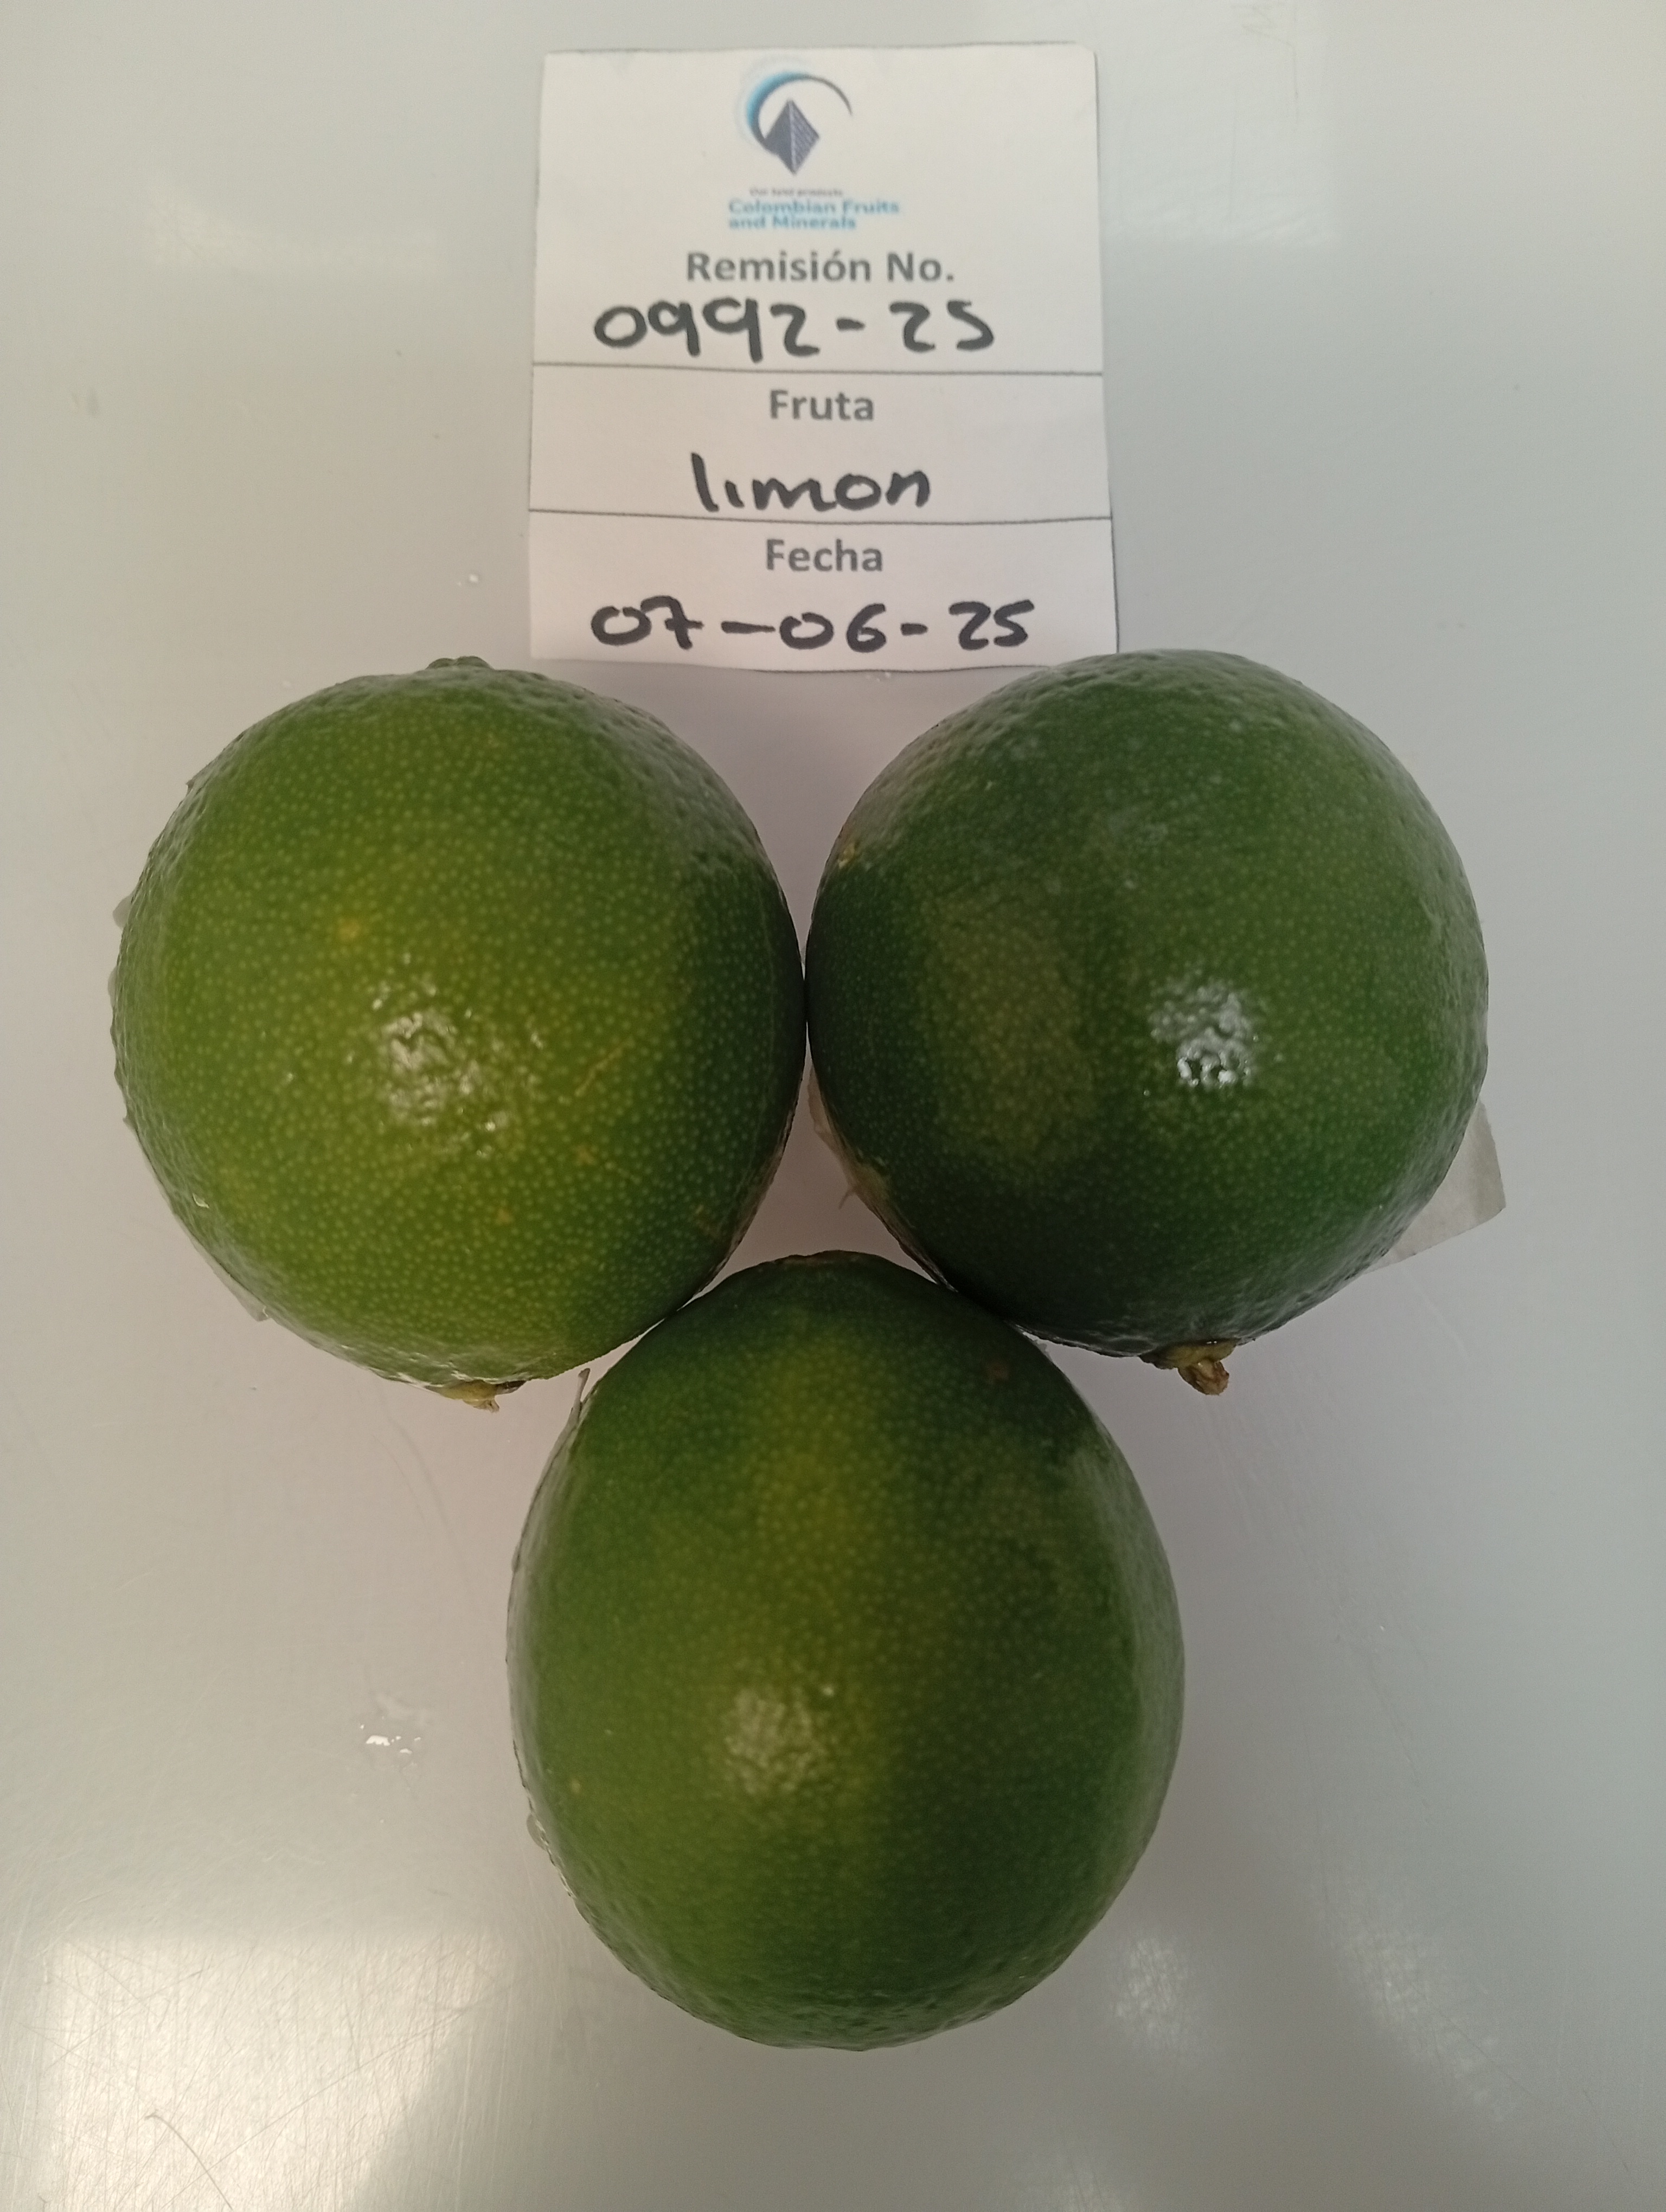 Our best products
Colombian Fruits
and Minerals
Remisión No.
0992-25
Fruta
limon
Fecha
07-06-25